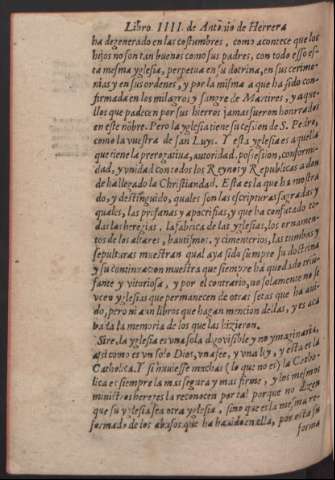 Libro IIII. de Antonio de Herrera
ha degenerado en las costumbres, como acontece que los
hijos no son tan buenos como sus padres, con todo esso es-
ta mesma yglesia, perpetua en su dotrina, en sus cerimo-
nias y en sus ordenes, y por la misma a que ha sido con-
firmada en los milagros y sangre de Martires, y aque-
llos que padecen por sus hierros jamas fueron honrrados
en este nõbre. Pero la yglesia tiene sucession de S. Pedro,
como la vuestra de san Luys. Y esta yglesia es aquella
que tiene la prerogatiua, autoridad, possession, conformi-
dad, y vnidad con todos los Reynos y Republicas a don
de ha llegado la Christiandad. Esta es la que ha mostra
do, y destinguido, quales son las escripturas sagradas y
quales, las profanas y apocrifas, y que ha confutado to-
das las heregias. La fabrica de las yglesias, los ornamen-
tos de los altares, bautismos, y cimenterios, las tumbas y
sepulturas muestran qual aya sido siempre su doctrina
y su continuacion muestra que siempre ha quedado triũ-
fante y vitoriosa, y por el contrario, no solamente no se
veen yglesias que permanecen de otras setas que ha aui-
do, pero ni aun libros que hagan mencion dellas, y es aca
bada la memoria de los que las hizieron.
Sire, la yglesia es vna sola digo visible y no ymaginaria,
assi como es vn solo Dios, vna fee, y vna ley, y esta es la
Catholica. Y si huuiesse muchas (lo que no es) la Catho-
lica es siempre la mas segura y mas firme, y los mesmos
ministros hereges la reconocen por tal porque no dizen
que su yglesia sea otra yglesia, sino que es la mesma re-
formada de los abusos que ha hauido en ella, por esta su
forma